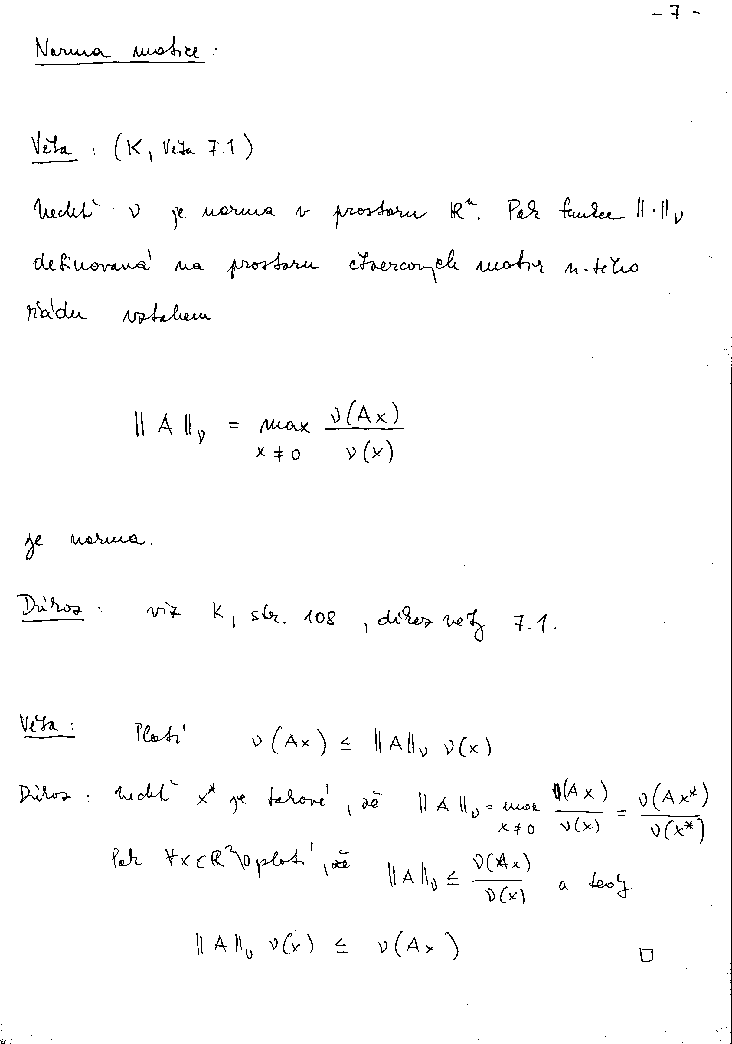 - 7 -
Norma matice :
Věta : (K, Věta 7.1)
Nechť ν je norma v prostoru ℝⁿ. Pak funkce ‖·‖_ν
definovaná na prostoru čtvercových matic n-tého
řádu vztahem
‖A‖_ν = max_{x≠0} ν(Ax)/ν(x)
je norma.
Důkaz : viz K, str. 108, důkaz věty 7.1.
Věta : Platí ν(Ax) ≤ ‖A‖_ν ν(x)
Důkaz : Nechť x* je takové, že ‖A‖_ν = max_{x≠0} ν(Ax)/ν(x) = ν(Ax*)/ν(x*)
Pak ∀x∈ℝⁿ\0 platí, že ‖A‖_ν ≤ ν(Ax)/ν(x) a tedy
‖A‖_ν ν(x) ≤ ν(Ax) □